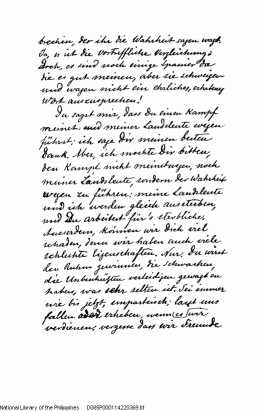 brechen, der ihr die Wahrheit sagen wagt.
Ja, es ist die vortreffliche Vergleichung:
Doch, es sind noch einige Spanier da
die es gut meinen, aber sie schweigen
und wagen nicht ein ehrliches,
Wort auszusprechen!
Du sagst mir, dass Du einen Kampf
meinet und meiner Landsleute wegen
führst; ich sage dir meinen besten
Dank. Aber, ich möchte Dir bitten,
den Kampf nicht meinetwegen, noch
meiner Landsleute, sondern der Wahrheit
wegen zu führen; meine Landsleute
und ich werden gleich aussterben,
und Du arbeitest für's sterbliches,
Ausserdem, können wir Dich viel
schaden, denn wir haben auch viele
schlechte Eigenschaften. Nur: Du wirst
den Ruhm gewinnen, die Schwachen,
die Unbenützten verteidigen gewagt zu
haben, was sehr selten ist. Sei immer
wie bis jetzt, unparteiisch; lasst uns
fallen oder erheben, wenn es wir
verdienen; vergesse dass wir Freunde
National Library of the Philippines DGIISP000114220369.tif